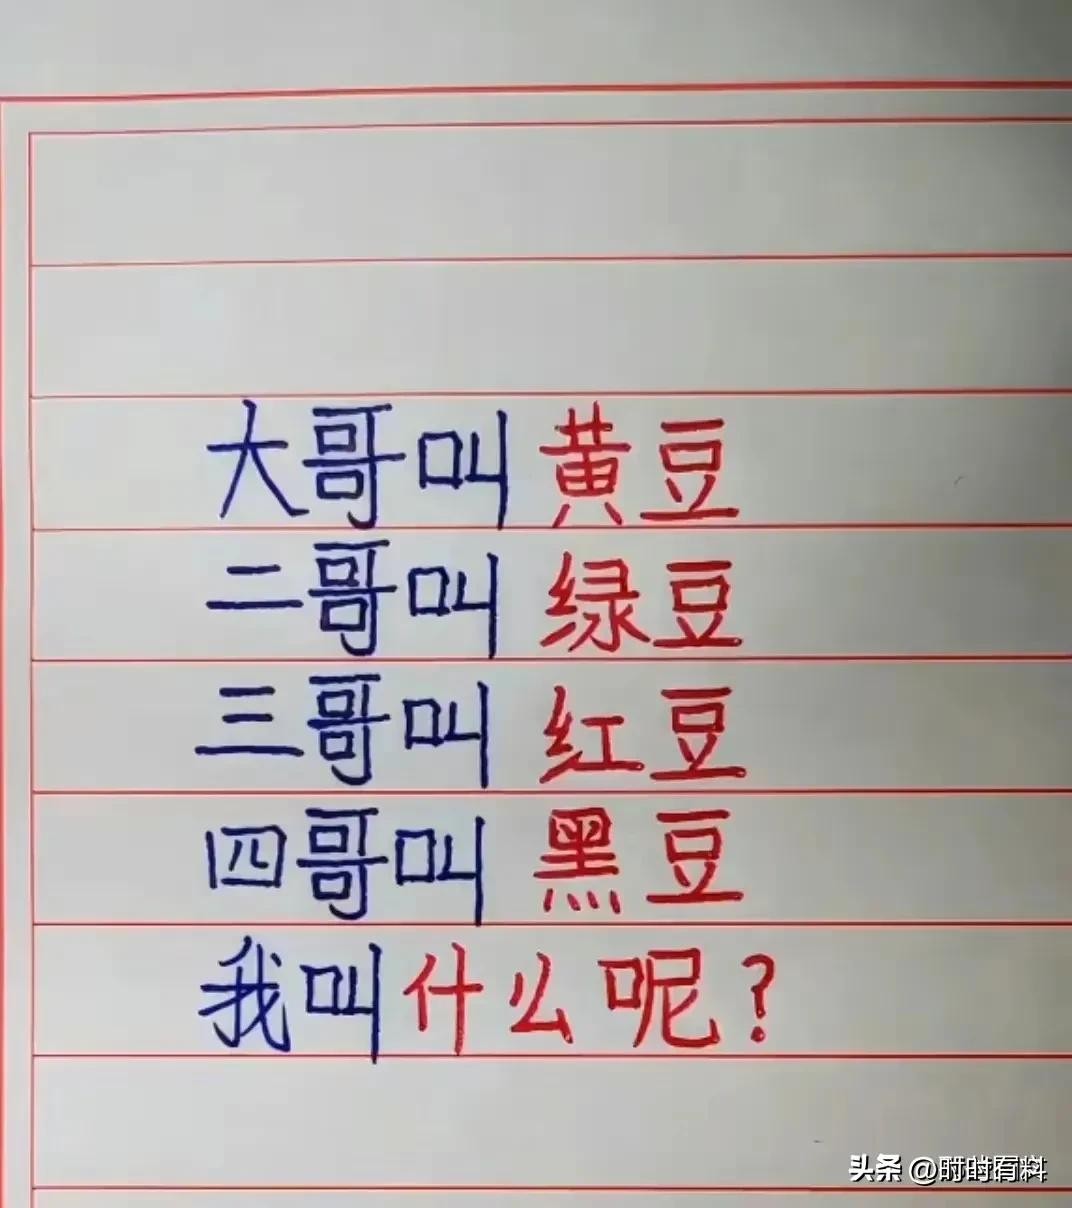 大哥叫黄豆
二哥叫绿豆
三哥叫红豆
四哥叫黑豆
我叫什么呢?
头条 @时时有料